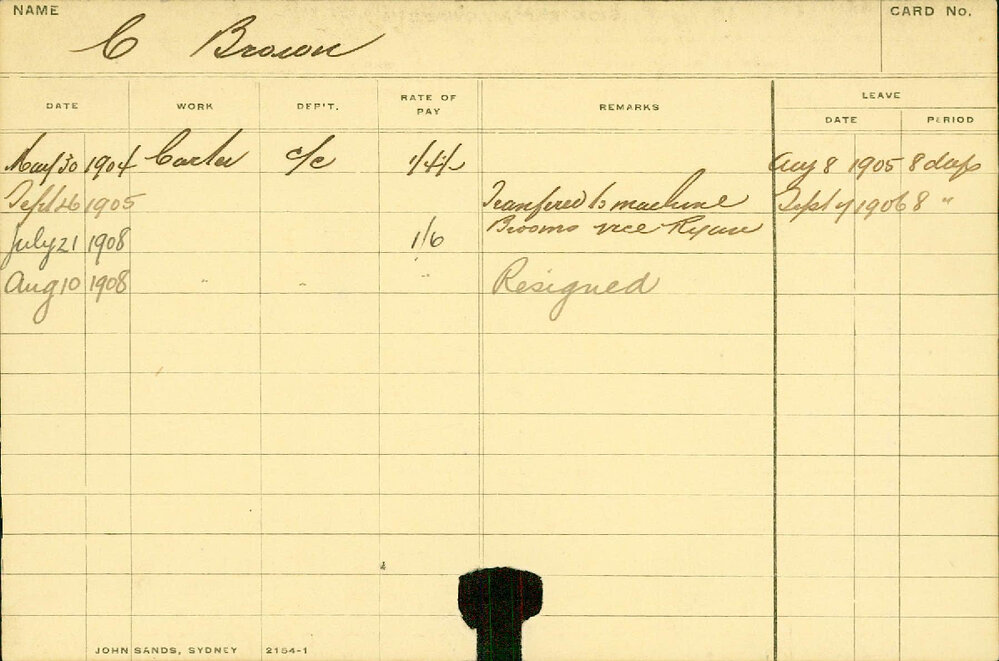 NAME
CARD No.
C Brown
DATE WORK DEP'T. RATE OF PAY REMARKS LEAVE
DATE PERIOD
May 30 1904 Carter c/c Aug 8 1905 8 days
Sept 26 1905 Tranfered to machine Sept 1906 8 "
Brooms vice Ryan
July 21 1908 1/6
Aug 10 1908 " " " Resigned
JOHN SANDS, SYDNEY 2154-1